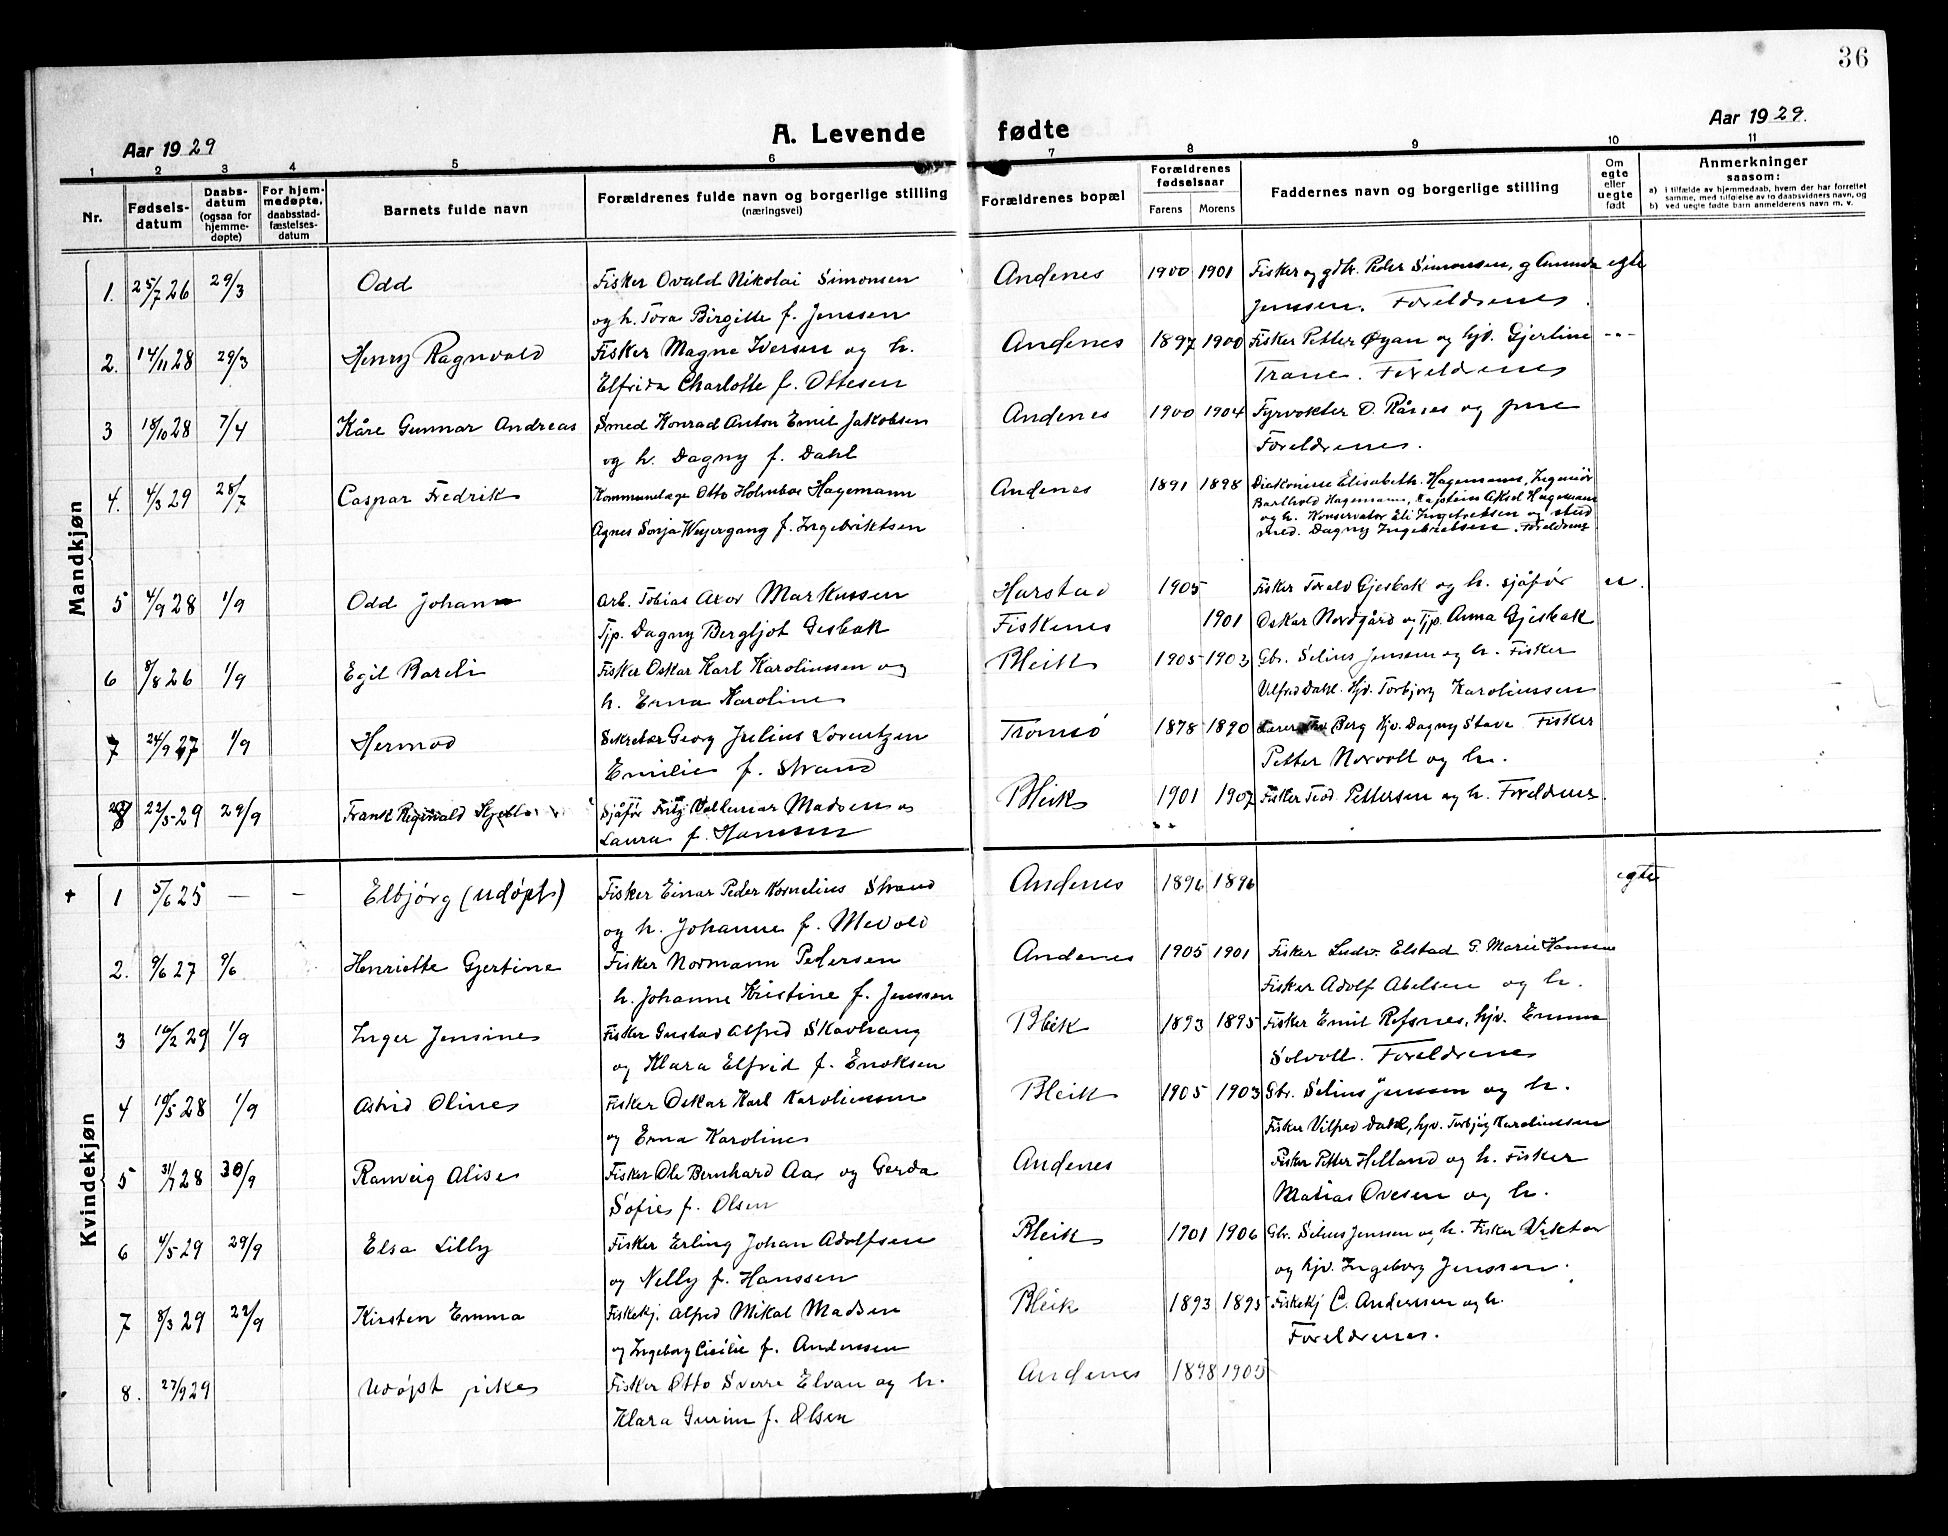 36
Aar 1929
A. Levende
fødte
Aar 1929.
1 2 3 4 5 6 7 8 9 10 11
Nr.
Fødsels-
datum
Daabs-
datum
(ogsaa for
hjemme-
døpte)
For hjem-
medøpte,
daabsstad-
fæstelses-
datum
Barnets fulde navn
Forældrenes fulde navn og borgerlige stilling
(næringsvei)
Forældrenes bopæl
Forældrenes
fødselsaar
Farens Morens
Faddernes navn og borgerlige stilling
Om
egte
eller
uegte
født
Anmerkninger
saasom:
a) i tilfælde av hjemmedaab, hvem der har forrettet
samme, med tilføielse av to daabsvidners navn, og
b) ved uegte fødte barn anmelderens navn m. v.
Mandkjøn
1. 25/7 26 29/3 Odd Fisker Ovald Nikolai Simonsen Andenes 1900 1901 Fisker og gdbr. Peder Simonsen, g Amanda egte
og h. Tora Birgitte f. Jenssen Jenssen. Foreldrenes
2. 14/11 28 29/3 Henry Ragnvald Fisker Magne Iversen og h. Andenes 1897 1900 Fisker Petter Øyan og hjv. Gjertine -"-
Elfrida Charlotte f. Ottesen Trane. Foreldrenes
3 18/10 28 7/4 Kåre Gunnar Andreas Smed Konrad Anton Emil Jakobsen Andenes 1900 1904 Fyrvokter O. Rånes og frue
og h. Dagny f. Dahl Foreldrenes.
4. 4/3 29 28/7 Caspar Fredrik Kommunelæge Otto Holmboe Hagemann Andenes 1891 1898 Diakonisse Elisabeth Hagemann, Ingeniør
Barthold Hagemann, Kaptein Aksel Hagemann
Agnes Sonja Weyergang f. Ingebriktsen og h. Konservator Eli Ingebriktsen og stud
med. Dagny Ingebriktsen. Foreldrene
5 4/9 28 1/9 Odd Johan Arb. Tobias Axor Markussen Harstad 1905 Fisker Torald Gjesbak og h. sjåfør u.
Tjp. Dagny Bergljot Gesbak Fiskenes 1901 Oskar Nordgård og Tjp. Anna Gjesbak
6 8/8 26 1/9 Egil Bareli Fisker Oskar Karl Karoliussen og Bleik 1905 1903 Gbr. Selius Jenssen og h. Fisker
h. Erna Karoline Vilfred Dahl. Hjv. Torbjørg Karoliussen
7 24/9 27 1/9 Hermod Sekretær Georg Julius Lorentzen Tromsø 1878 1890 Lærer Berg Hjv. Dagny Stave Fisker
Emilie f. Strand Petter Norvoll og h.
8 22/5 29 29/9 Frank Reginald Sjåfør Fritz Valdemar Madsen og Bleik 1901 1907 Fisker Teod. Pettersen og h. Foreldrene.
Laura f. Hanssen
Kvindekjøn
+ 1 5/6 25 — – Elbjørg (udøpt) Fisker Einar Peder Kornelius Strand Andenes 1896 1896 egte
og h. Johanne f. Mevold
2. 9/6 27 9/6 Henriette Gjertine Fisker Normann Pedersen Andenes 1905 1901 Fisker Ludv. Elstad G. Marie Hansen
h. Johanne Kristine f. Jenssen Fisker Adolf Abelsen og h.
3 10/2 29 1/9 Inger Jensine Fisker Gustav Alfred Skavhaug Bleik 1893 1895 Fisker Emil Refsnes, hjv. Emma
og Klara Elfrid f. Enoksen Solvoll. Foreldrene
4 10/5 28 1/9 Astrid Oline Fisker Oskar Karl Karoliussen Bleik 1905 1903 Gbr. Selius Jenssen og h.
og Erna Karoline Fisker Vilfred Dahl, hjv. Torbjørg Karoliussen
5 31/7 28 30/9 Ranveig Alise Fisker Ole Bernhard Aas og Gerda Andenes Fisker Petter Helland og h. Fisker
Sofie f. Olsen Matias Ovesen og h.
6 4/5 29 29/9 Elsa Lilly Fisker Erling Johan Adolfsen Bleik 1901 1906 Gbr. Selius Jenssen og h. Fisker Viktor
og Nelly f. Hanssen og hjv. Ingeborg Jenssen.
7 8/3 29 22/9 Kirsten Emma Fiskekj. Alfred Mikal Madsen Bleik 1893 1895 Fiskekj C. Anderssen og h.
og Ingeborg Cicilie f. Anderssen Foreldrenes.
8. 27/9 29 Udøpt pike Fisker Otto Sverre Elvan og h. Andenes 1898 1905
Klara Gurine f. Olsen